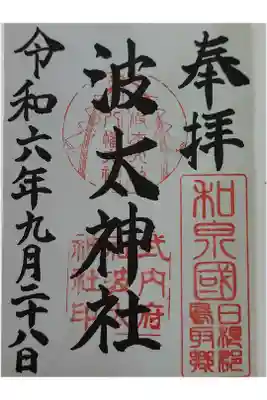 奉拝
和泉國
日根郡
鳥取郷
波太神社
式内府
神社印
令和六年九月二十八日